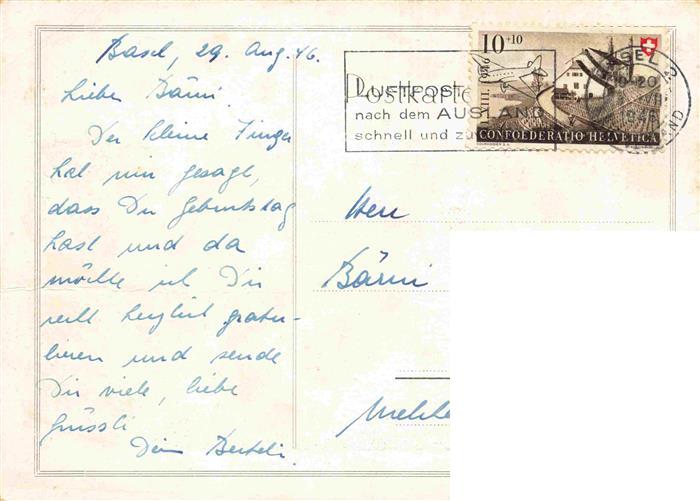 Basel, 29. Aug. 46.
Lieber Bärni.
Der kleine Finger
hat mir gesagt,
dass Du Geburtstag
hast und da
möchte ich Dir
recht herzlich gratu-
lieren und sende
Dir viele, liebe
Grüssli
Dein Berteli.
Postkarte
LUFTPOST
nach dem AUSLAND
schnell und zu
10+10
1946
CONFOEDERATIO HELVETICA
BASEL
-20
Herrn
Bärni